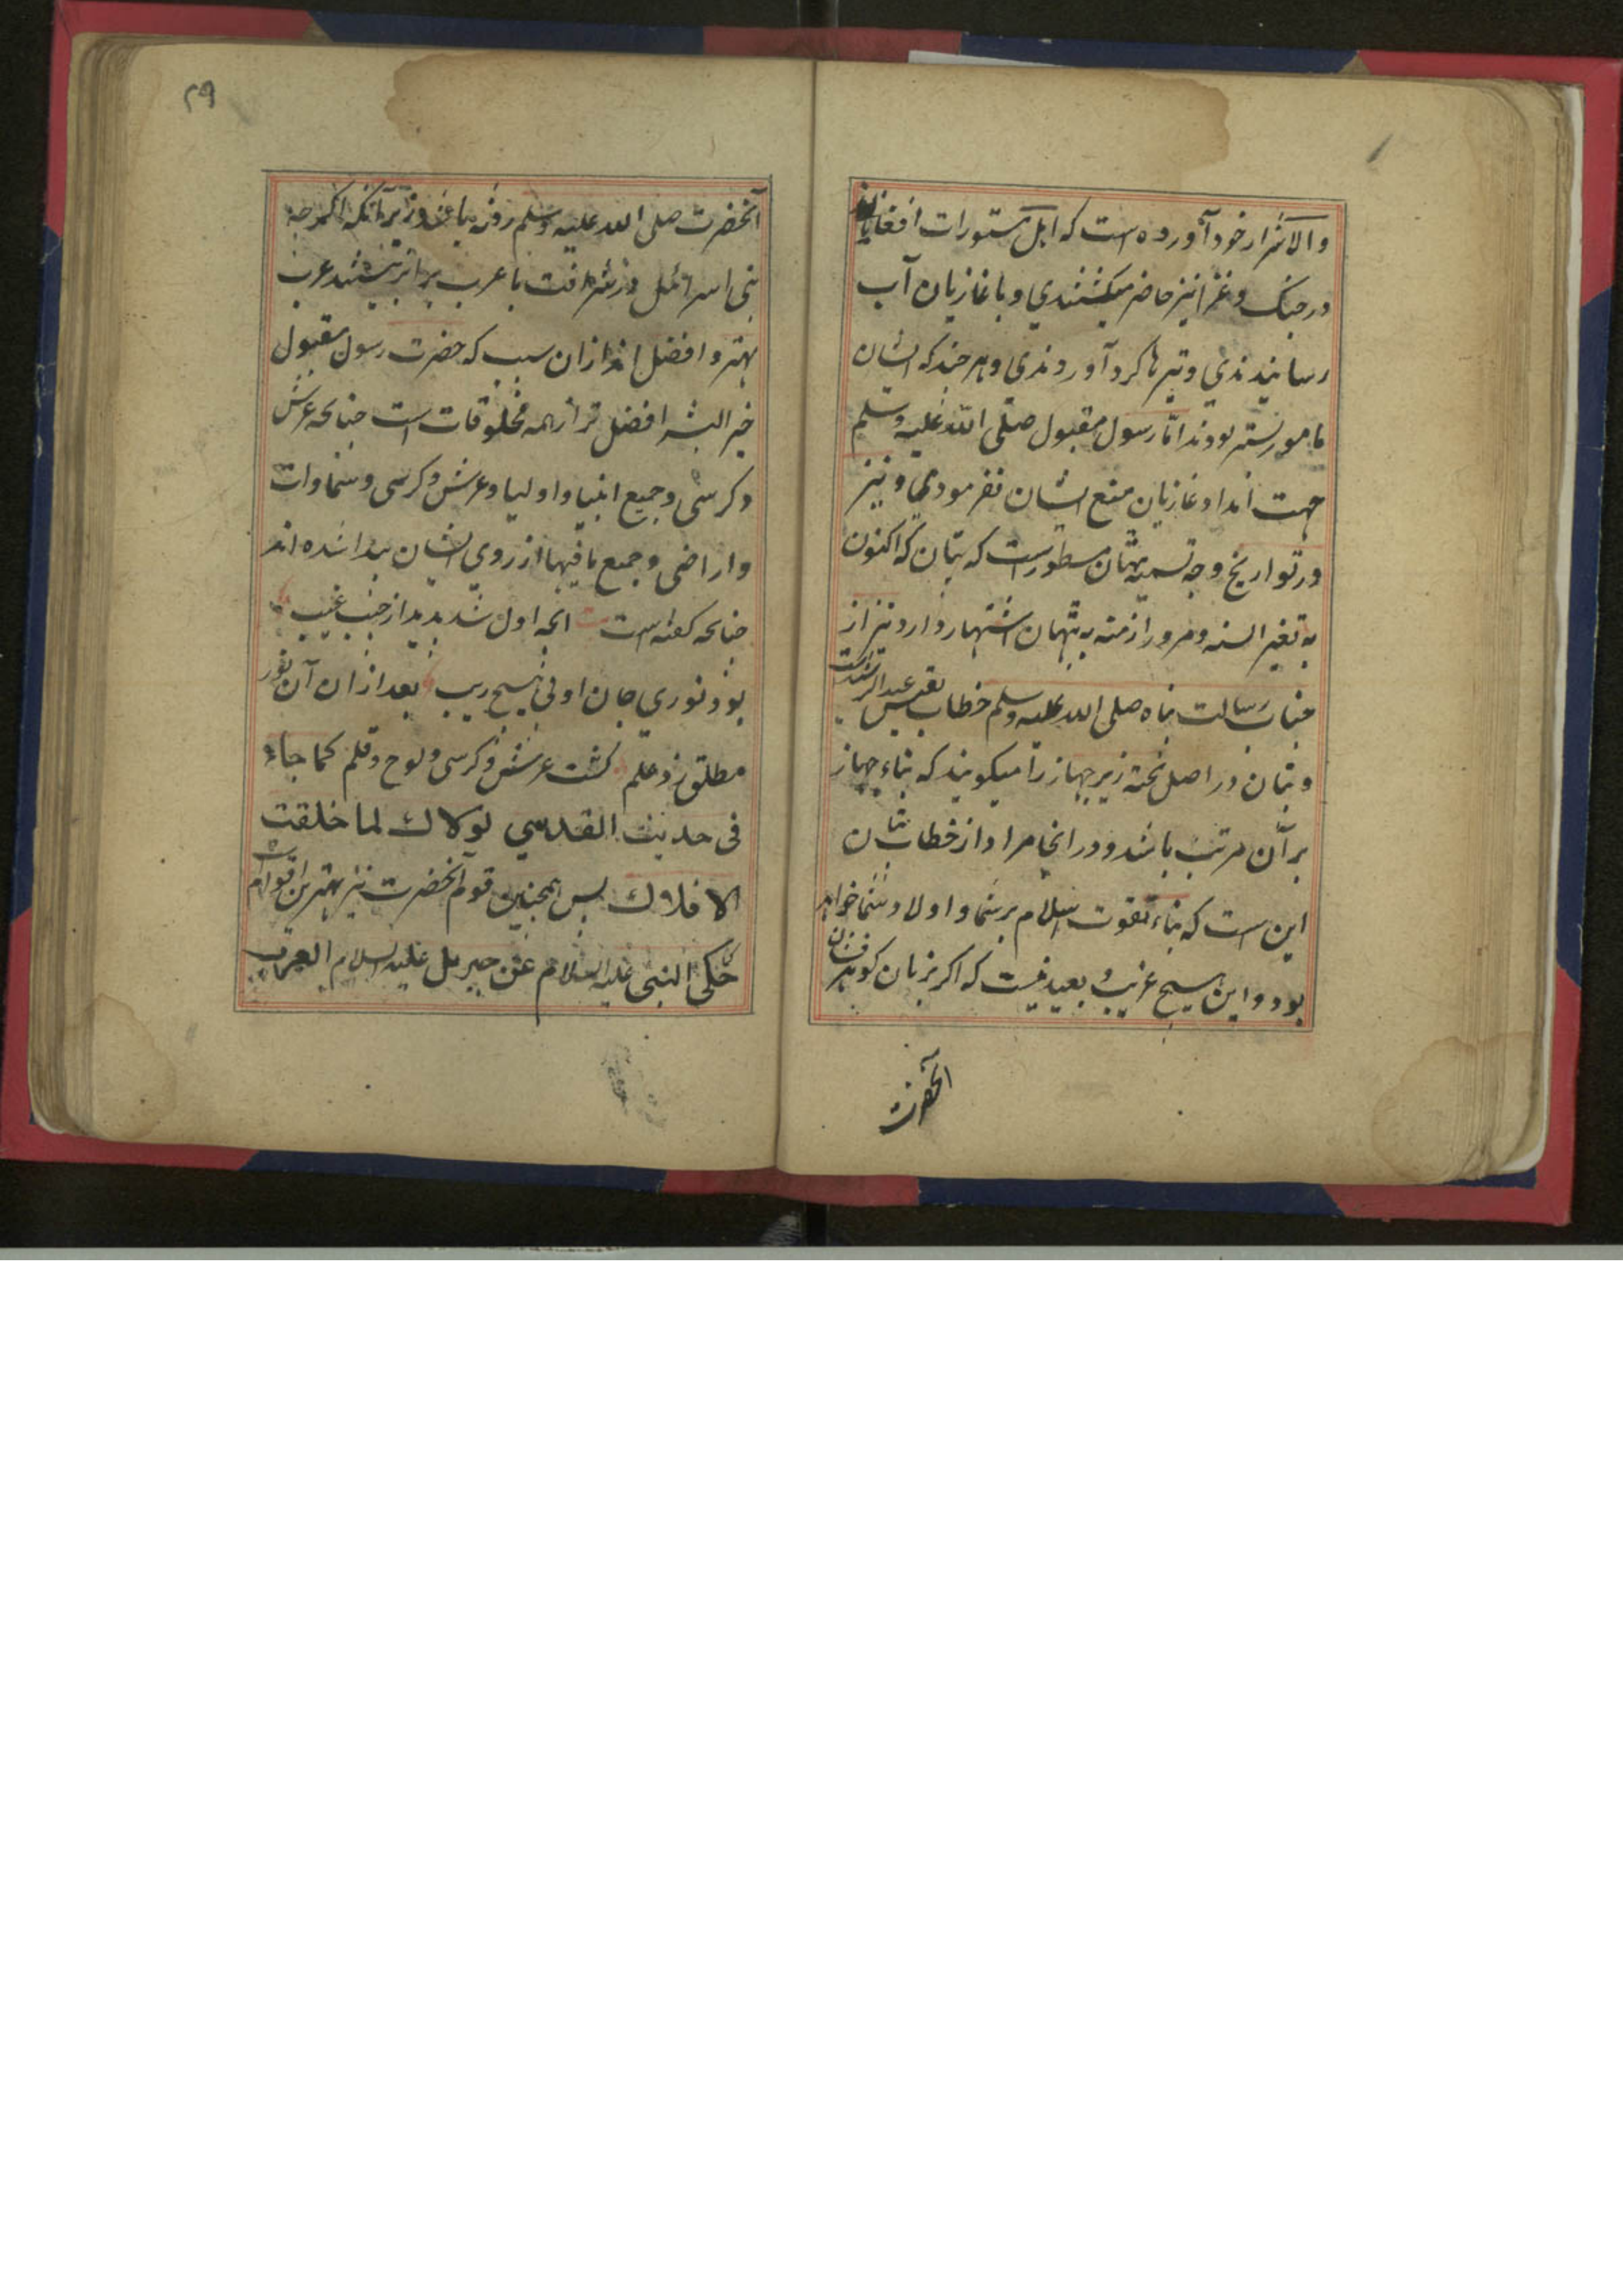 والاشرار خود آورده است که اہل مستورات افغانان
در جنک و غزا نیز حاضر میکشتندی و با غازیان آب
رسانیدندی و تیرها کرد آوردندی و هرچند که ایشان
مامور بستر بودند اما رسول مقبول صلی الله علیه وسلم
جهت امداد غازیان منع ایشان نفرمودی و نیز
در تواریخ وجه تسمیه پتهان مسطور است که بتان که اکنون
به تغیر السنه و مرور ازمنه به پتهان اشتهار دارد نیز از
جناب رسالت پناه صلی الله علیه وسلم خطاب قیس عبد الرشید است
و بتان در اصل تخته زیر جهاز را میکویند که بناء جهاز
بر آن مرتب باشد و در انجا مراد از خطاب بتان
این است که بناء تقوت اسلام بر شما و اولاد شما خواهد
بود و این هیچ غریب و بعید نیست که اکر بزبان کوهر فشان
آنحضرت
۲۹
آنحضرت صلی الله علیه وسلم رفته باشد زیرآنکه اکرچه
بنی اسرائیل در شرافت با عرب برابر نیستند عرب
بهتر و افضل اند از ان سبب که حضرت رسول مقبول
خیر البشر افضل تر از همه مخلوقات است چنانچه عرش
و کرسی و جمیع انبیا و اولیا و عرش و کرسی و سماوات
و اراضی و جمیع ما فیها از روی ایشان پیدا شده اند
چنانچه کفته است انچه اول شد پدید از جیب غیب
بود نوری جان او بی هیچ ریب بعد از ان آن نور
مطلق زد علم کشت عرش و کرسی و لوح و قلم کما جاء
فی حدیث القدسی لولاك لما خلقت
الافلاك پس همچنین قوم آنحضرت نیز بهترین اقوام است
حکی النبی علیه السلام عن جبریل علیه السلام العرب